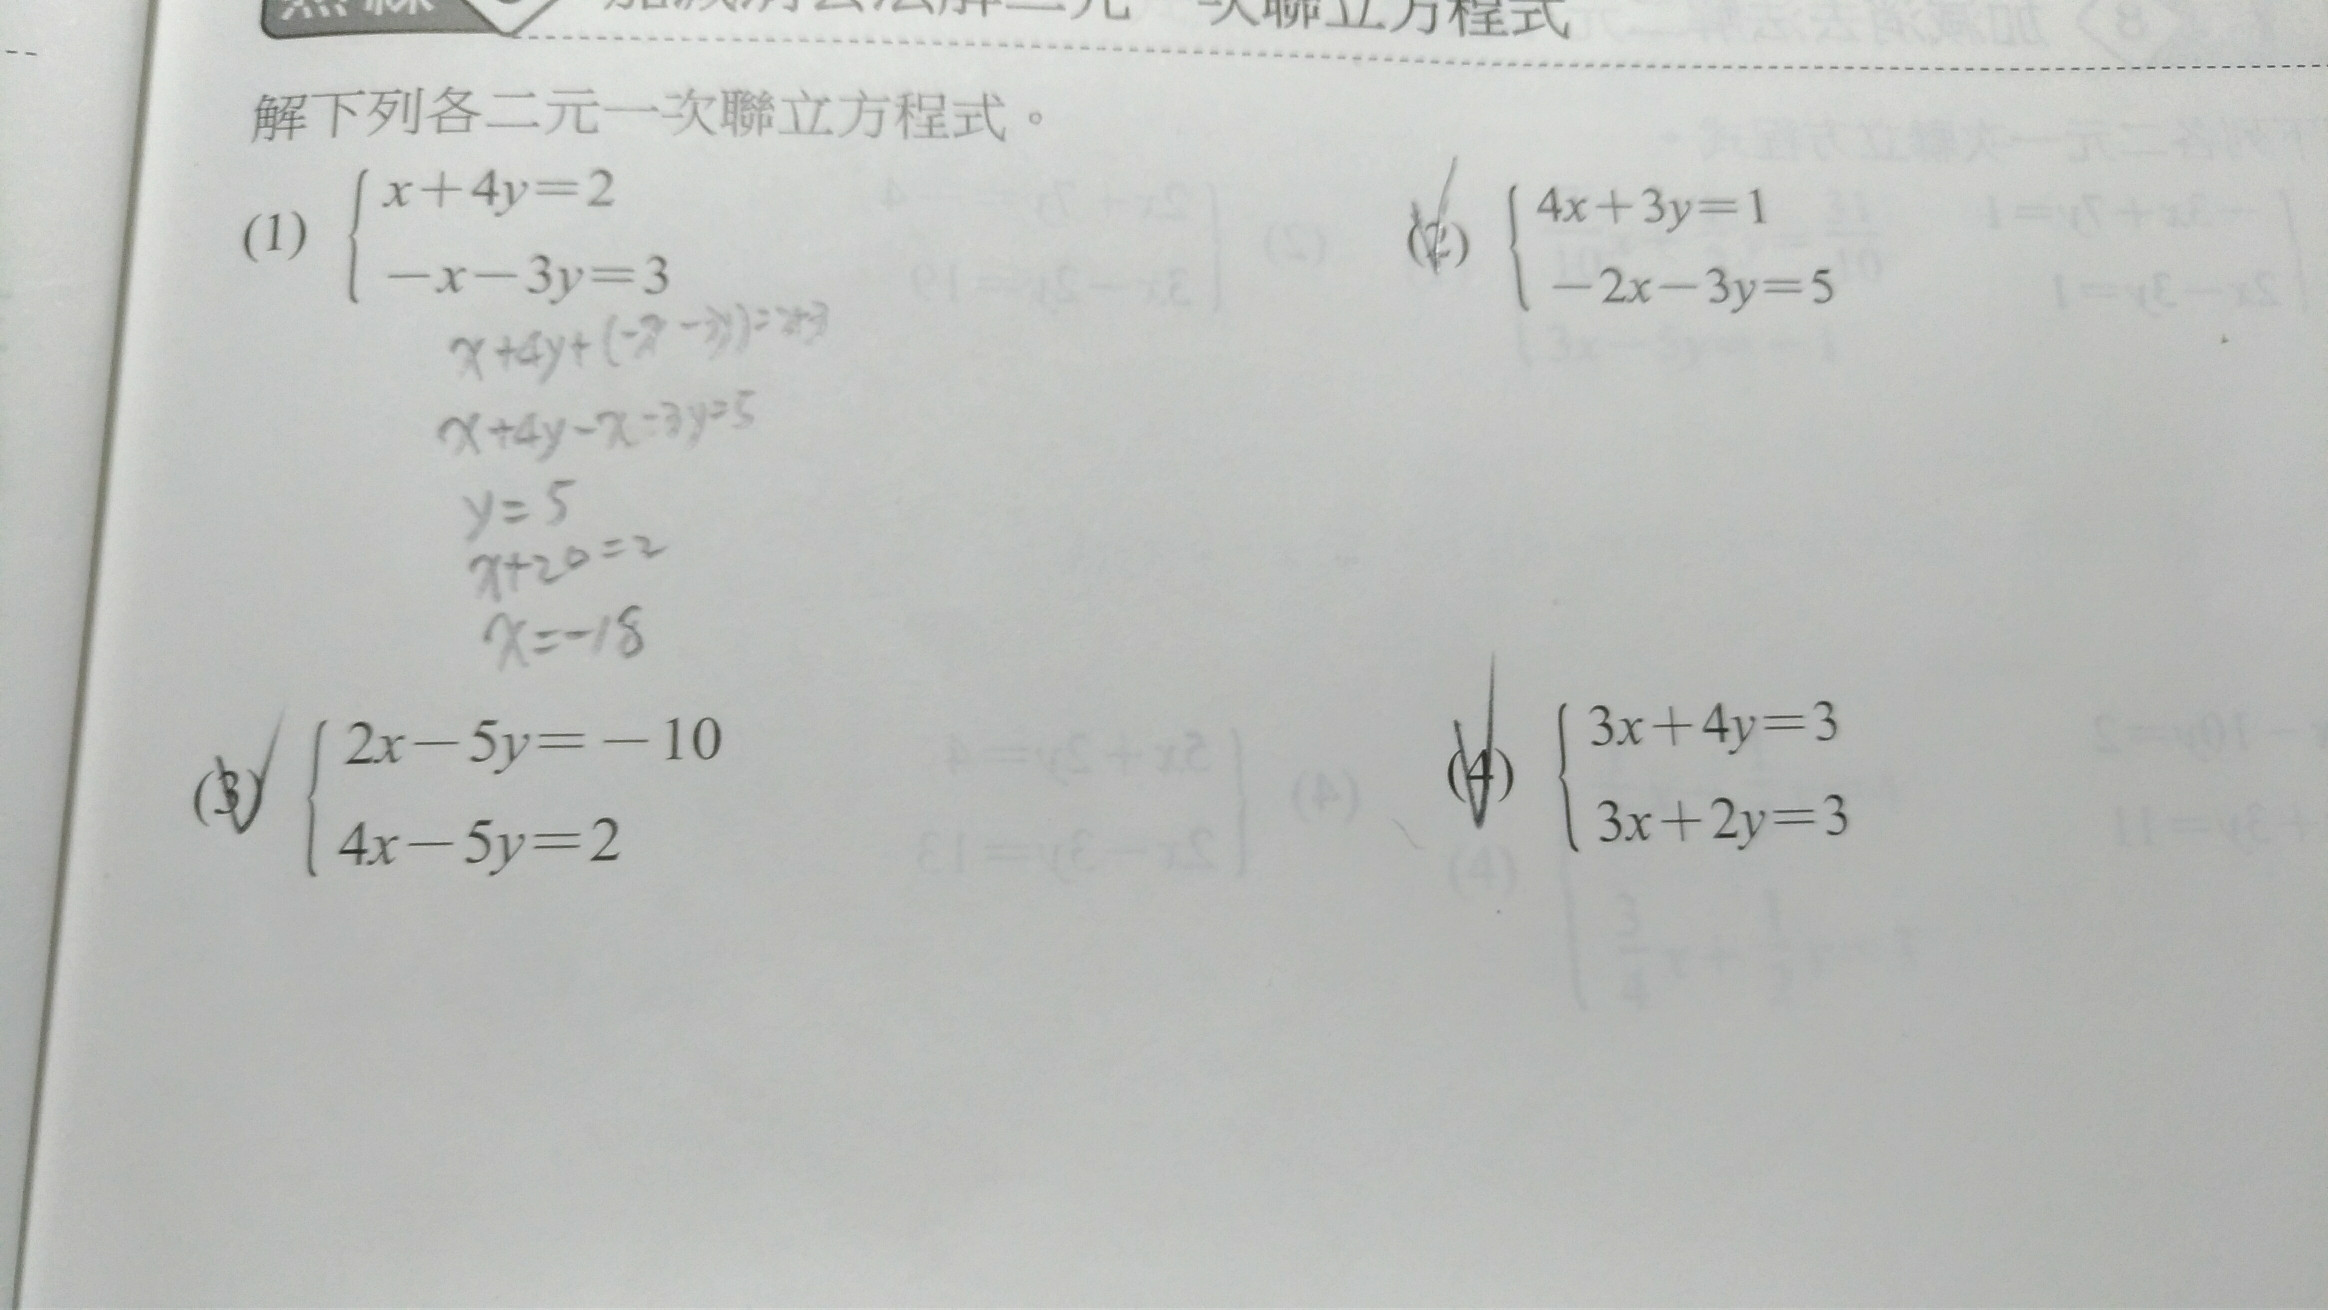 加減消去法解二元一次聯立方程式
解下列各二元一次聯立方程式。
(1) x+4y=2
-x-3y=3
x+4y+(-x-3y)=2+3
x+4y-x-3y=5
y=5
x+20=2
x=-18
(2) 4x+3y=1
-2x-3y=5
(3) 2x-5y=-10
4x-5y=2
(4) 3x+4y=3
3x+2y=3